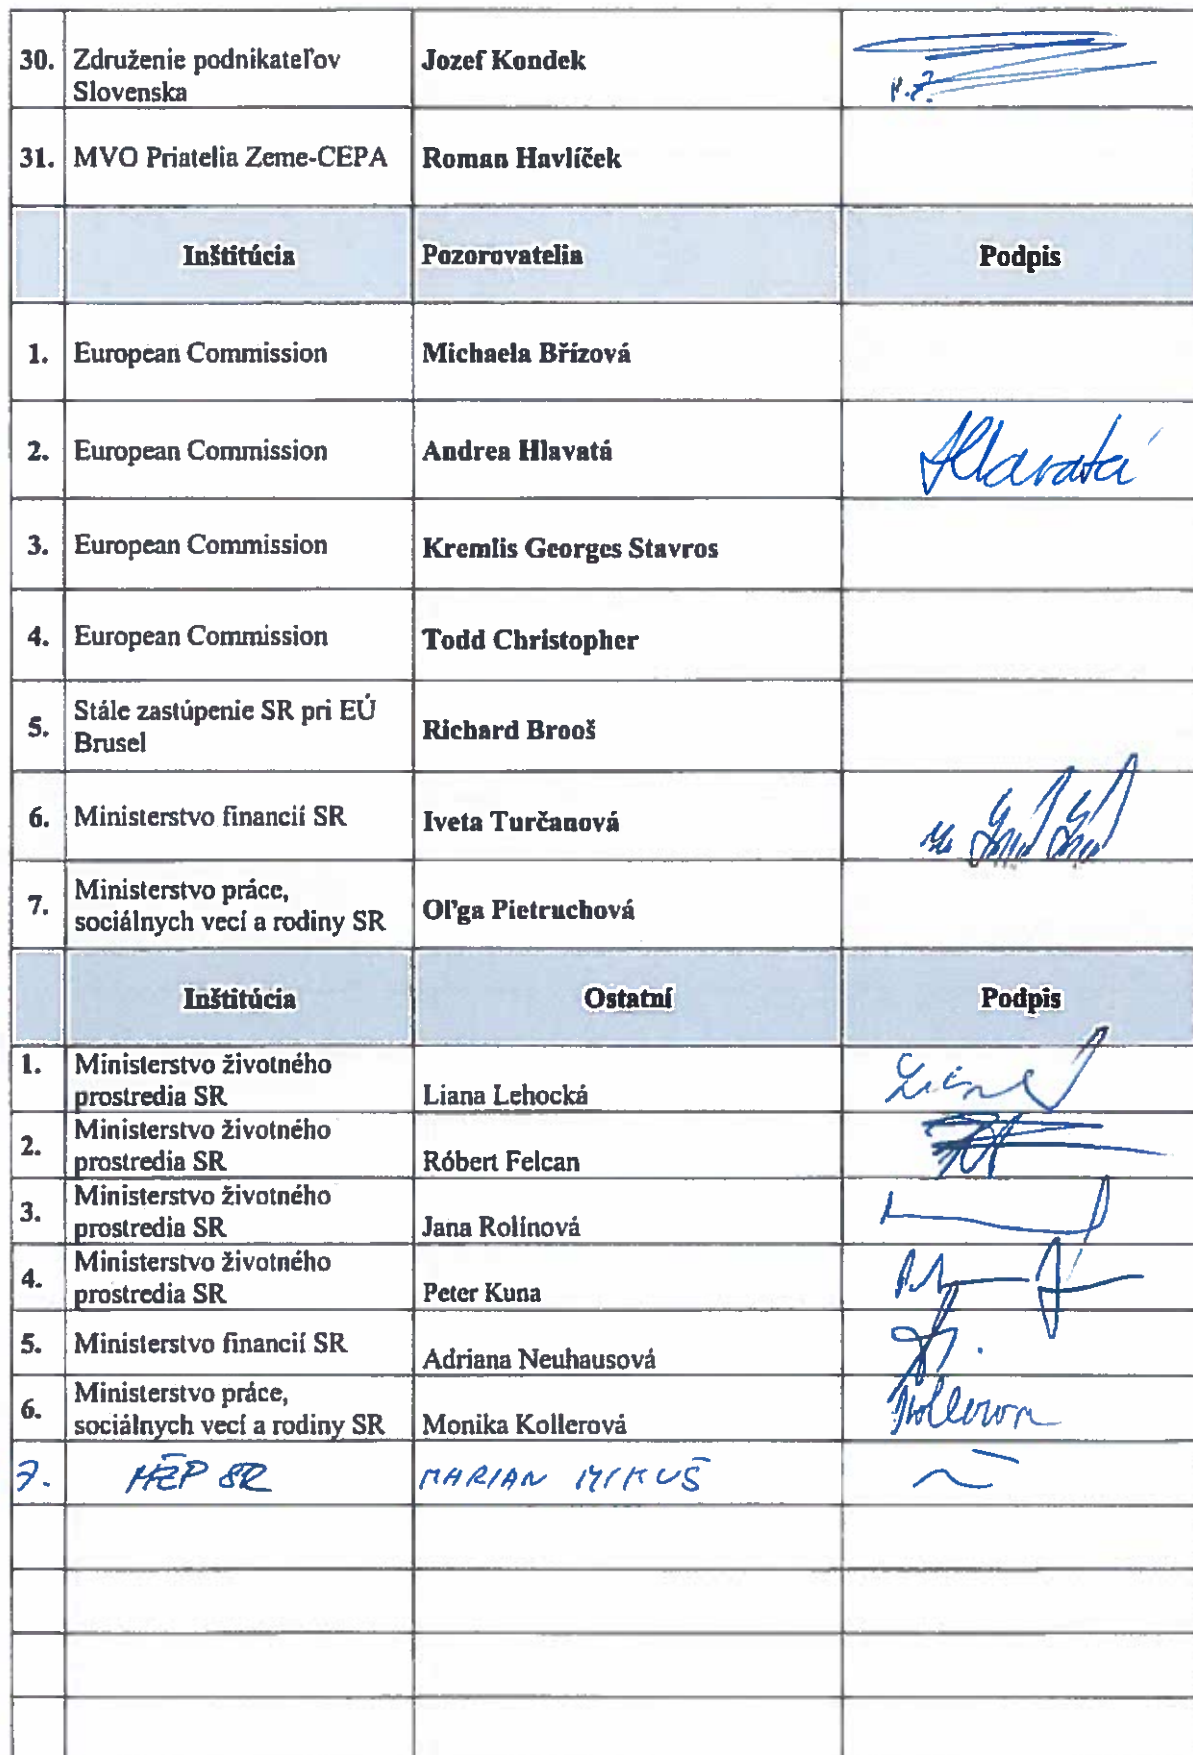 30. Združenie podnikateľov Slovenska Jozef Kondek
31. MVO Priatelia Zeme-CEPA Roman Havlíček
Inštitúcia Pozorovatelia Podpis
1. European Commission Michaela Břízová
2. European Commission Andrea Hlavatá Hlavatá
3. European Commission Kremlis Georges Stavros
4. European Commission Todd Christopher
5. Stále zastúpenie SR pri EÚ Brusel Richard Brooš
6. Ministerstvo financií SR Iveta Turčanová
7. Ministerstvo práce, sociálnych vecí a rodiny SR Oľga Pietruchová
Inštitúcia Ostatní Podpis
1. Ministerstvo životného prostredia SR Liana Lehocká
2. Ministerstvo životného prostredia SR Róbert Felcan
3. Ministerstvo životného prostredia SR Jana Rolínová
4. Ministerstvo životného prostredia SR Peter Kuna
5. Ministerstvo financií SR Adriana Neuhausová
6. Ministerstvo práce, sociálnych vecí a rodiny SR Monika Kollerová
7. MŽP SR MARIAN MIKUŠ